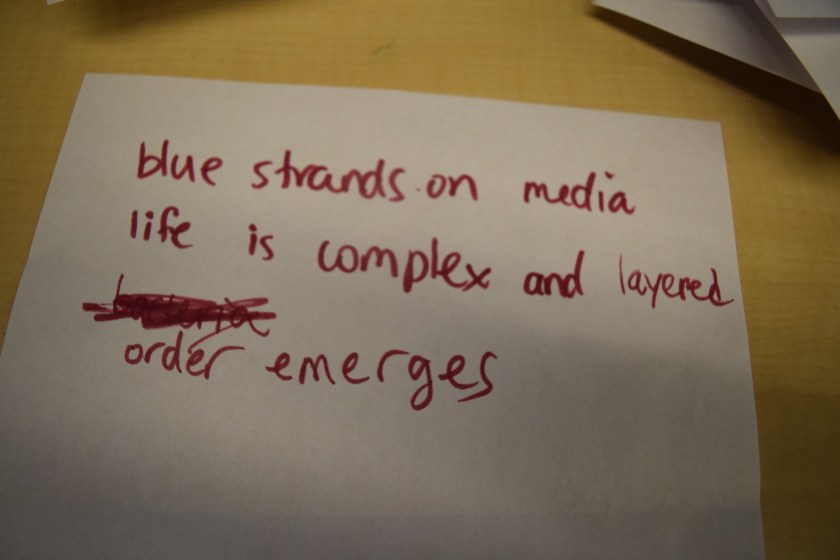 blue strands on media
life is complex and layered
order emerges